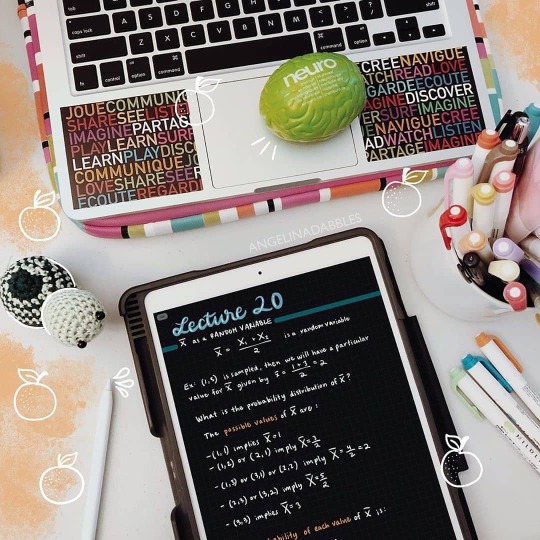 tab
caps lock
shift
fn
control
option
command
Z X C V B N M
command
option
shift
neuro
JOUECOMMUNI
SHARESEELIST
IMAGINEPARTAG
PLAYLEARNSURF
LEARNPLAYDISC
COMMUNIQUEJO
LOVESHARESEE
ECOUTEREGARD
CREENAVIGUE
ATCHREADLOVE
GARDEECOUTE
DISCOVER
ERSURFIMAGINE
ENAVIGUECREE
ADWATCHLISTEN
PARTAGEIMAGIN
ANGELINADABBLES
Lecture 20
X̄ as a RANDOM VARIABLE
X̄ = (X₁ + X₂)/2 is a random variable
Ex: (1,3) is sampled, then we will have a particular
value for X̄ given by x̄ = (1+3)/2 = 2
What is the probability distribution of X̄?
The possible values of X̄ are:
- (1,1) implies X̄=1
- (1,2) or (2,1) imply X̄=3/2
- (1,3) or (3,1) or (2,2) imply X̄=4/2=2
- (2,3) or (3,2) imply X̄=5/2
- (3,3) implies X̄=3
bability of each value of X̄ is: